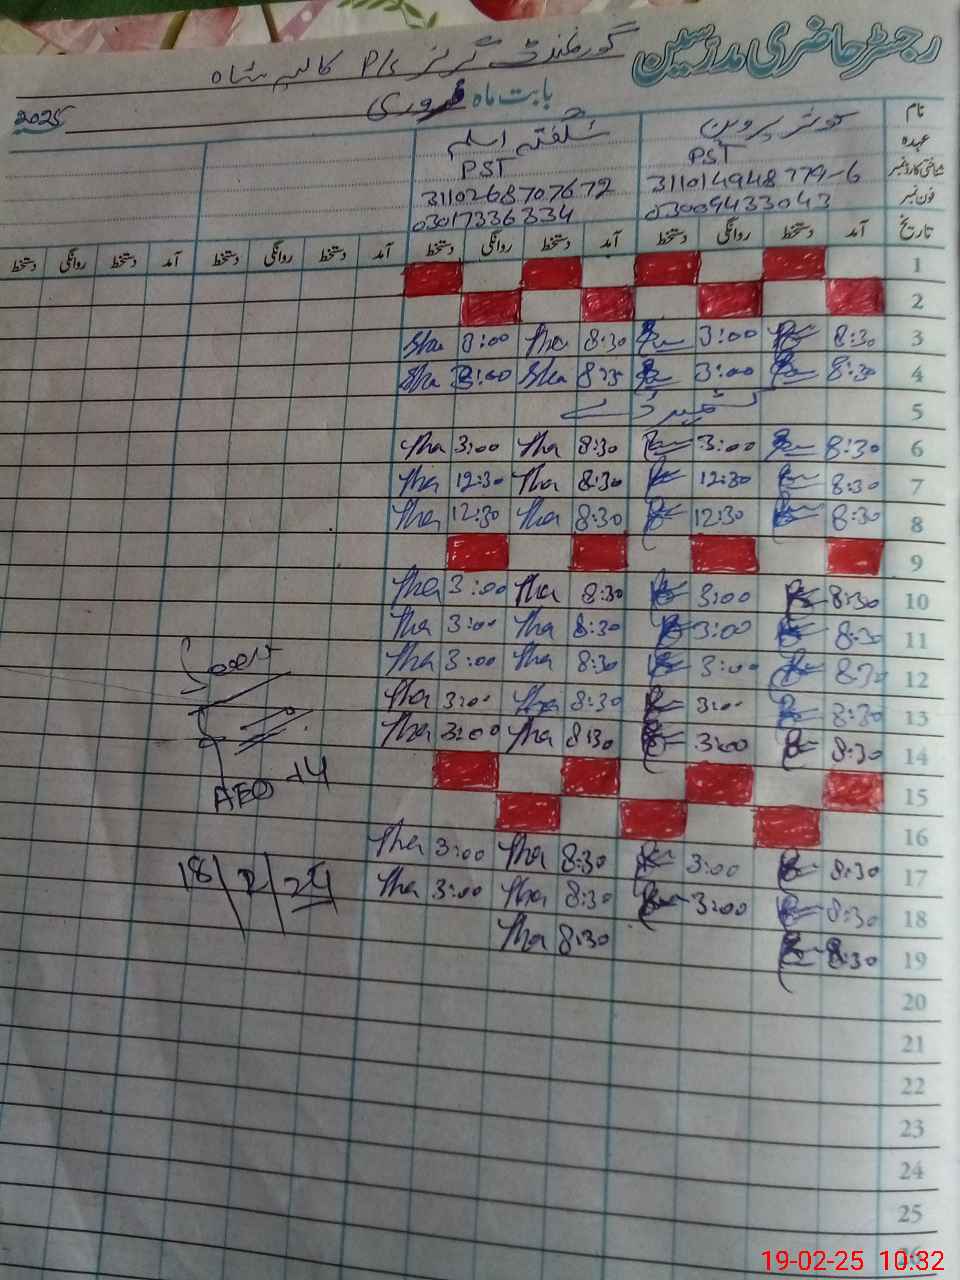 رجسٹر حاضری مدرسین
گورنمنٹ گرلز P/S کالیہ شاہ
بابت ماہ فروری 2025
نام کوثر پروین شگفتہ اسلم
عہدہ PST PST
شناختی کارڈ نمبر 311014948779-6 3110268707672
فون نمبر 03009433043 03017336334
تاریخ آمد دستخط روانگی دستخط آمد دستخط روانگی دستخط آمد دستخط روانگی دستخط آمد دستخط روانگی دستخط
1
2
3 8:30 3:00 8:30 Sha 3:00 Sha
4 8:30 3:00 8:30 Sha 3:00 Sha
5 کشمیر ڈے
6 8:30 3:00 8:30 Sha 3:00 Sha
7 8:30 12:30 8:30 Sha 12:30 Sha
8 8:30 12:30 8:30 Sha 12:30 Sha
9
10 8:30 3:00 8:30 Sha 3:00 Sha
11 8:30 3:00 8:30 Sha 3:00 Sha
12 8:30 3:00 8:30 Sha 3:00 Sha
13 8:30 3:00 8:30 Sha 3:00 Sha
14 8:30 3:00 8:30 Sha 3:00 Sha
15
16
17 8:30 3:00 8:30 Sha 3:00 Sha
18 8:30 3:00 8:30 Sha 3:00 Sha
19 8:30 8:30 Sha
20
21
22
23
24
25
26
AEO
18/2/24
19-02-25 10:32